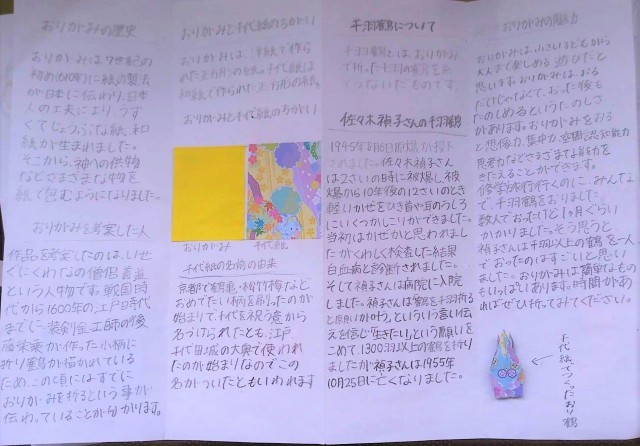 おりがみの歴史
おりがみは7世紀の
初め(610年)に紙の製法
が日本に伝わり、日本
人の工夫により、うす
くてじょうぶな紙、和
紙が生まれました。
そこから、神への供物
などさまざまな物を
紙で包むようになりました。
おりがみを考案した人
作品を考案したのは、いせ
くにくわなの僧侶義道
という人物です。戦国時
代から1600年の、江戸時代
までに装剣金工師の後
藤栄乗が作った小柄に
折り鶴が描かれている
ため、この頃にはすでに
おりがみを折るという事が
伝わっていることが分かります。
おりがみと千代紙のちがい
おりがみは、洋紙で作ら
れた正方形の紙。千代紙は
和紙で作られた正方形の紙。
おりがみと千代紙のちがい
おりがみ 千代紙
千代紙の名前の由来
京都で鶴亀・松竹梅など
おめでたい柄を刷ったのが
始まりで千代を祝う意から
名づけられたとも、江戸
千代田城の大奥で使われ
たのが始まりなのでこの
名がついたともいわれます
千羽鶴について
千羽鶴とは、おりがみ
で折った千羽の鶴を糸
でつないだものです。
佐々木禎子さんの千羽鶴
1945年8月6日原爆が投下
されました。佐々木禎子さん
は2さいの時に被爆し、被
爆から10年後の12さいのとき
軽いかぜをひき首や耳のうしろ
にいくつかしこりができました。
当初はかぜかと思われまし
たがくわしく検査した結果
白血病と診断されました。
そして禎子さんは病院に入院
しました。禎子さんは鶴を千羽折る
と願いがかなう。という言い伝
えを信じ「生きたい」という願いを
こめて、1300羽以上の鶴を折り
ましたが禎子さんは1955年
10月25日に亡くなりました。
おりがみの魅力
おりがみは、小さい子どもから
大人まで楽しめる遊びだと
思います。おりがみは、おる
だけじゃなくて、おった後も
たのしめるというたのしさ
があります。おりがみをおる
と想像力、集中力、空間認知能力
思考力などさまざまな能力を
きたえることができます。
修学旅行に行くのに、みんな
で、千羽鶴をおりました。
数人でおったけど1ヶ月くらい
かかりました。そう思うと
禎子さんは千羽以上の鶴を一人
でおったのはすごいと思い
ました。おりがみは簡単なもの
もいっぱいあります。時間があ
ればぜひ折ってみてください。
千代紙でつくったおり鶴